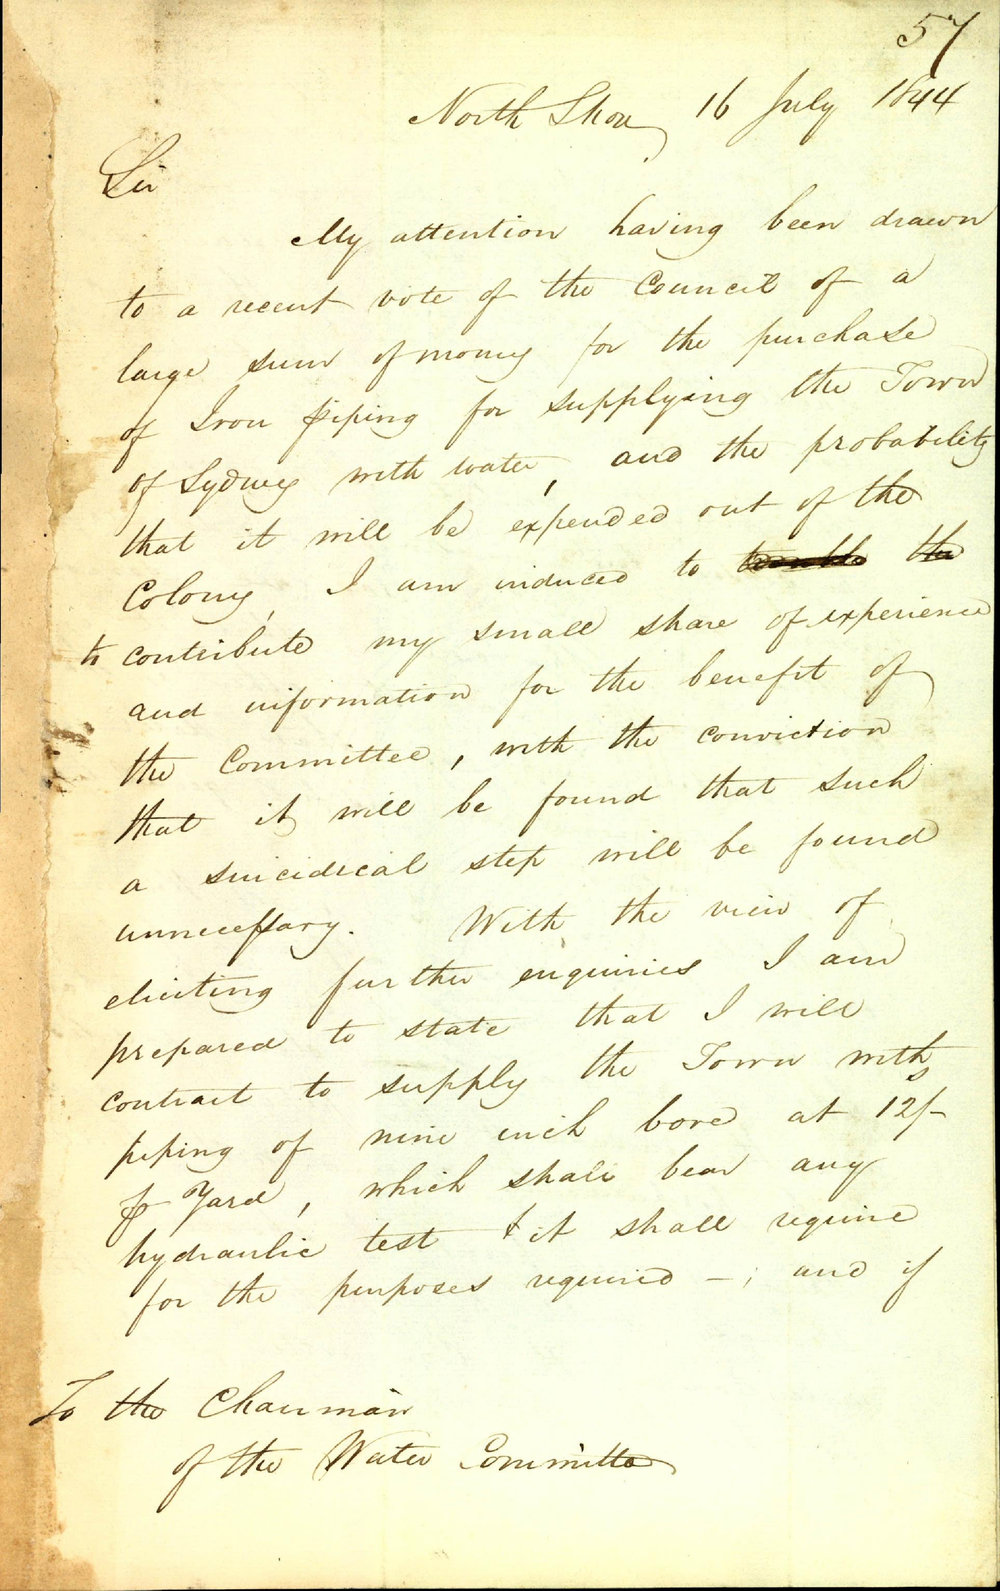 57
North Shore, 16 July 1844
Sir
My attention having been drawn
to a recent vote of the Council of a
large sum of money for the purchase
of Iron piping for supplying the Town
of Sydney with water, and the probability
that it will be expended out of the
Colony, I am induced to trouble the
to contribute my small share of experience
and information for the benefit of
the Committee, with the conviction
that it will be found that such
a suicidical step will be found
unnecessary. With the view of
eliciting further enquiries I am
prepared to state that I will
contract to supply the Town with
piping of nine inch bore at 12s/-
p Yard, which shall bear any
hydraulic test & it shall require
for the purposes required - ; and if
To the Chairman
of the Water Committee